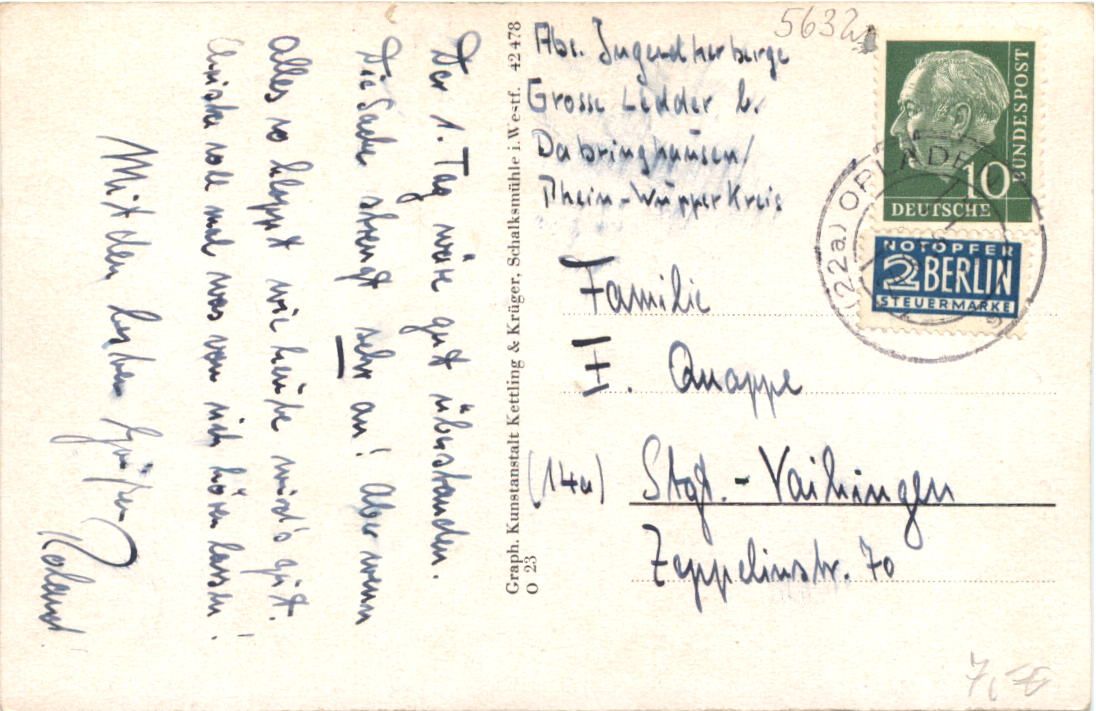 Der 1. Tag wäre gut überstanden.
Die Sache strengt sehr an! Aber wenn
alles so klappt wie heute wird's gut.
soll mal was von sich hören lassen!
Mit den besten Grüßen
Roland
Graph. Kunstanstalt Kettling & Krüger, Schalksmühle i. Westf. 42478
O 23
5632
Abs. Jugendherberge
Grosse Ledder b.
Dabringhausen/
Rhein-Wupper Kreis
Familie
H. Quappe
(14a) Stgt.-Vaihingen
Zeppelinstr. 70
BUNDESPOST
10
DEUTSCHE
(22a) OPLADEN
NOTOPFER
2 BERLIN
STEUERMARKE
7,-